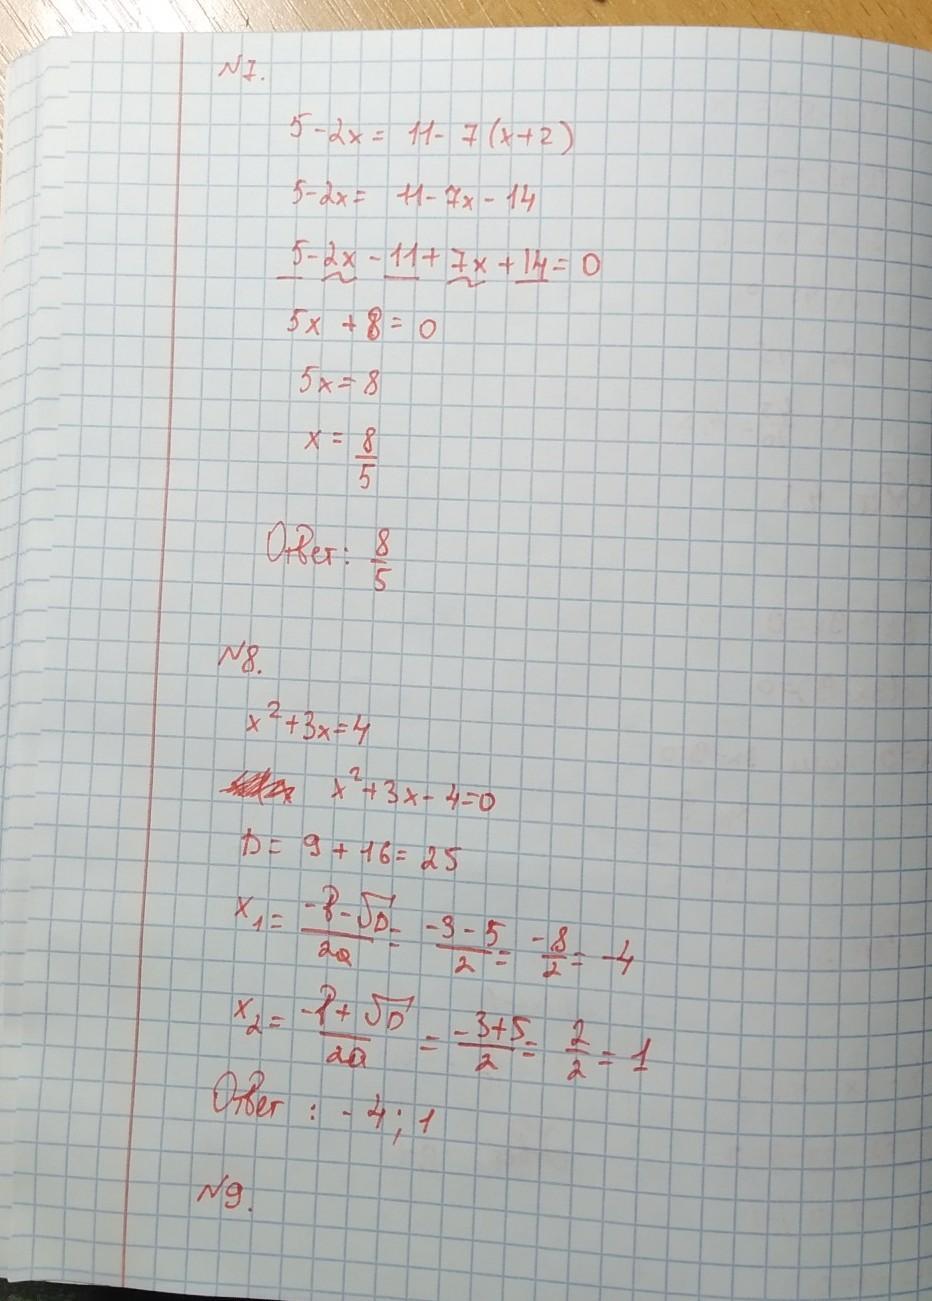 N7.
5-2x = 11- 7(x+2)
5-2x = 11-7x-14
5-2x-11+7x+14=0
5x+8=0
5x=8
x = 8/5
Ответ: 8/5
N8.
x²+3x=4
x²+3x-4=0
D= 9+16=25
x₁= (-b-√D)/2a = (-3-5)/2 = -8/2 = -4
x₂= (-b+√D)/2a = (-3+5)/2 = 2/2 = 1
Ответ: -4; 1
N9.